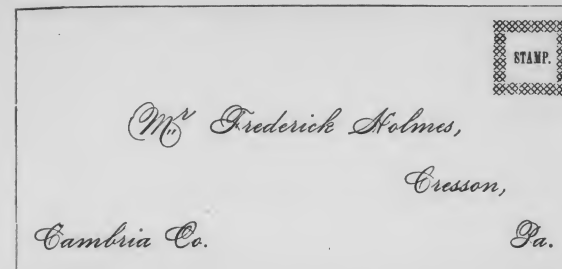 STAMP.
Mr Frederick Holmes,
Cresson,
Cambria Co. Pa.